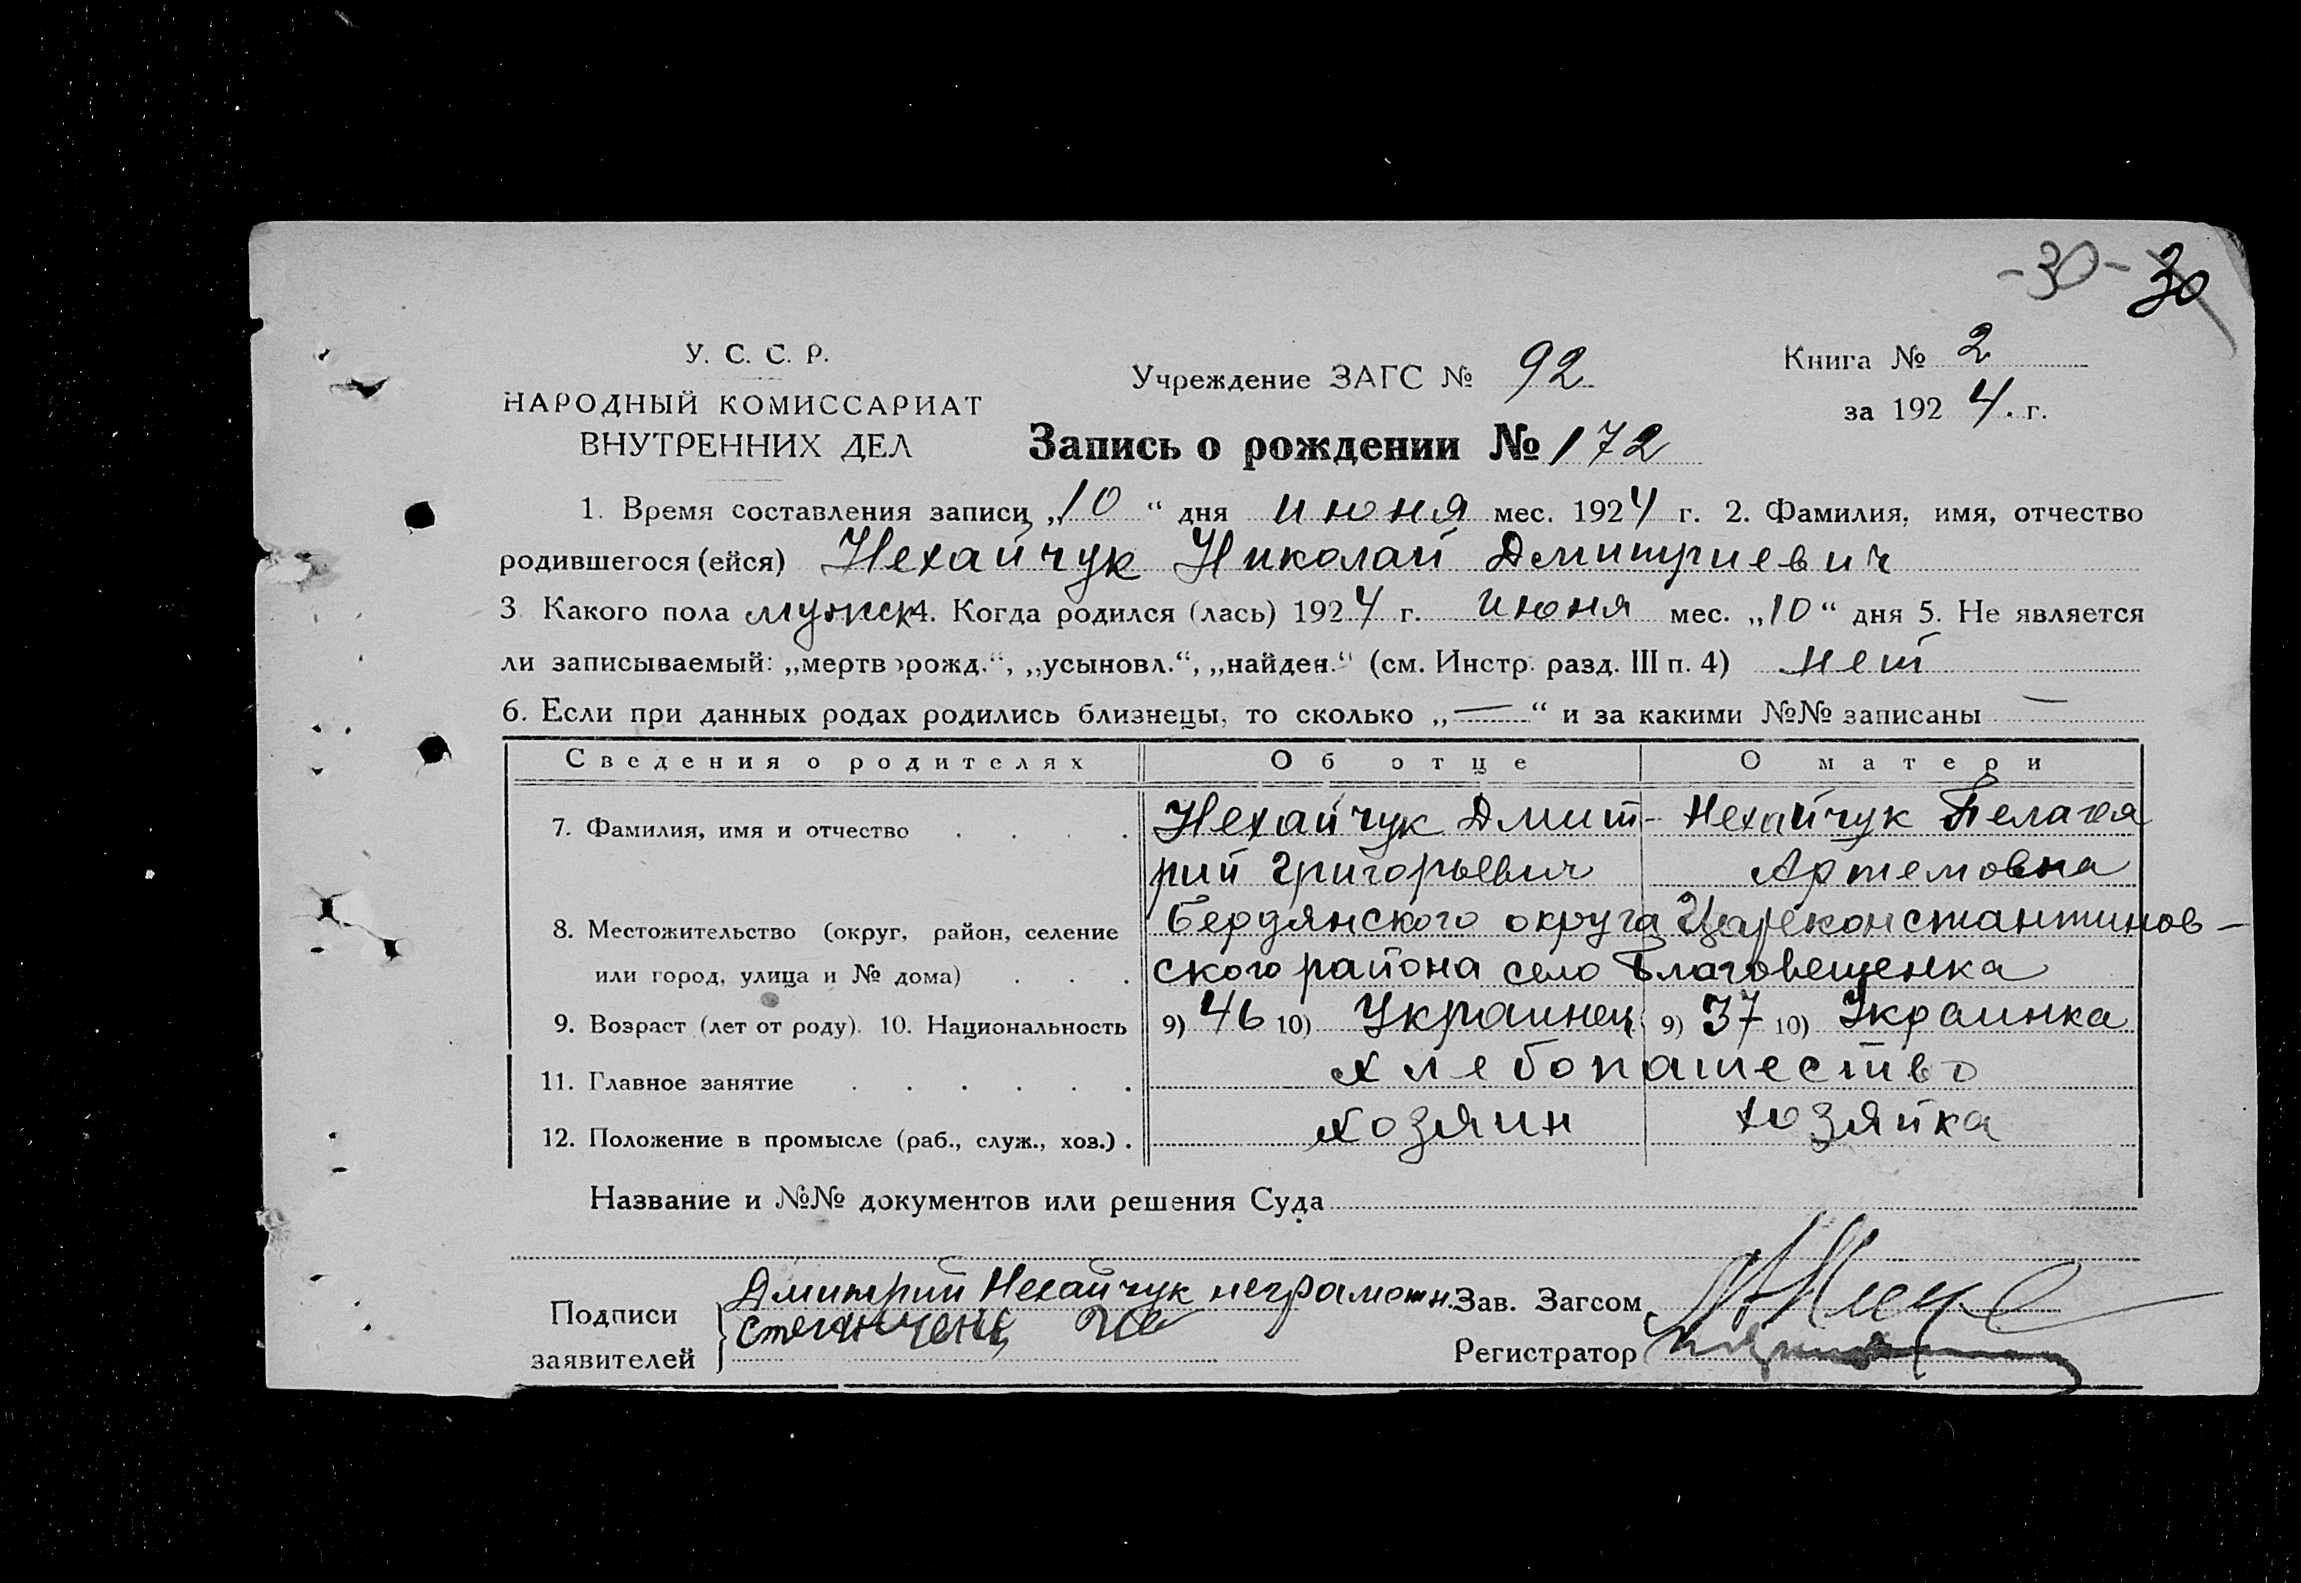 -30- 30
У. С. С. Р.
НАРОДНЫЙ КОМИССАРИАТ
ВНУТРЕННИХ ДЕЛ
Учреждение ЗАГС № 92
Книга № 2
за 1924. г.
Запись о рождении № 172
1. Время составления записи „10“ дня июня мес. 1924 г. 2. Фамилия, имя, отчество
родившегося (ейся) Нехайчук Николай Дмитриевич
3 Какого пола мужск 4. Когда родился (лась) 1924 г. июня мес. „10“ дня 5. Не является
ли записываемый: „мертворожд.“, „усыновл.“, „найден.“ (см. Инстр. разд. III п. 4) нет
6. Если при данных родах родились близнецы, то сколько „—“ и за какими №№ записаны —
Сведения о родителях Об отце О матери
7. Фамилия, имя и отчество . . . . Нехайчук Дмит- Нехайчук Пелагея
рий Григорьевич Артемовна
8. Местожительство (округ, район, селение Бердянского округа Цареконстантинов-
или город, улица и № дома) . . . ского района село Благовещенка
9. Возраст (лет от роду). 10. Национальность 9) 46 10) Украинец 9) 37 10) Украинка
11. Главное занятие . . . . . . хлебопашество
12. Положение в промысле (раб., служ., хоз.) . хозяин хозяйка
Название и №№ документов или решения Суда
Подписи
заявителей
Дмитрий Нехайчук неграмотн.
Зав. Загсом
Регистратор